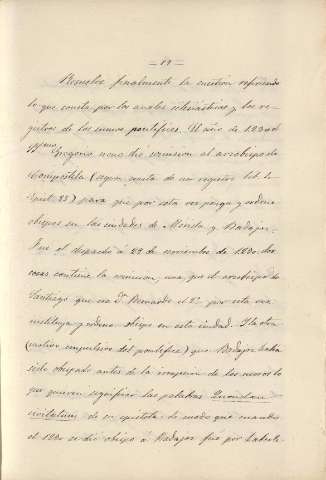 = 12 =
Resuelve finalmente la cuestion refiriendo
lo que consta por los anales eclesiásticos y los re-
gistros de los sumos pontífices. El año de 1230 el
Gregorio nono dió comision al arzobispo de
Compostela (segun consta de un registro lib. 4.
Epist. 23) para que por esta vez ponga y ordene
obispos en las ciudades de Mérida y Badajoz.
Fue el despacho á 29 de noviembre de 1230 dos
cosas contiene la comision, una, que el arzobispo de
Santiago que era D. Bernardo el 2º por esta vez
instituya y ordene obispo en esta ciudad. Y la otra
(motivo impulsivo del pontífice) que Badajoz habia
sido obispado antes de la irrupcion de los moros lo
que quieren significar las palabras
civitatum de su epístola de modo que cuando
el 1230 se dió obispo á Badajoz fué por